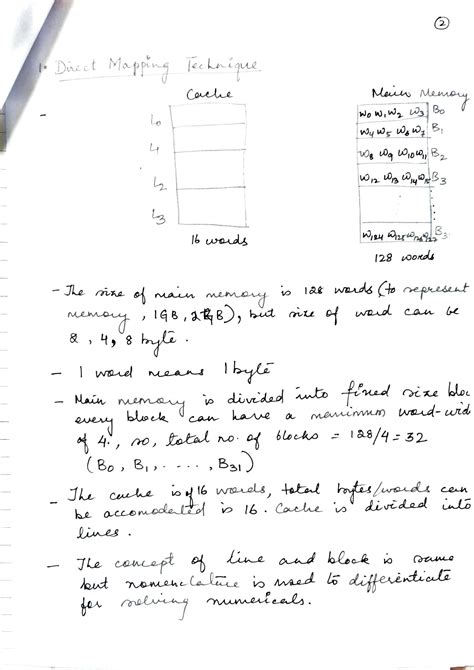 2
1. Direct Mapping Technique
Cache Main Memory
L0
L1
L2
L3
16 words
W0 W1 W2 W3 B0
W4 W5 W6 W7 B1
W8 W9 W10 W11 B2
W12 W13 W14 W15 B3
W124 W125 W126 W127 B3
128 words
- The size of main memory is 128 words (to represent
memory, 1GB, 2GB), but size of word can be
2, 4, 8 byte.
- 1 word means 1 byte
- Main memory is divided into fixed size bloc
every block can have a maximum word-wid
of 4., so, total no. of blocks = 128/4 = 32
(B0, B1, ....., B31)
- The cache is of 16 words, total bytes/words can
be accomodated is 16. Cache is divided into
lines.
- The concept of line and block is same
but nomenclature is used to differenticate
for solving numericals.